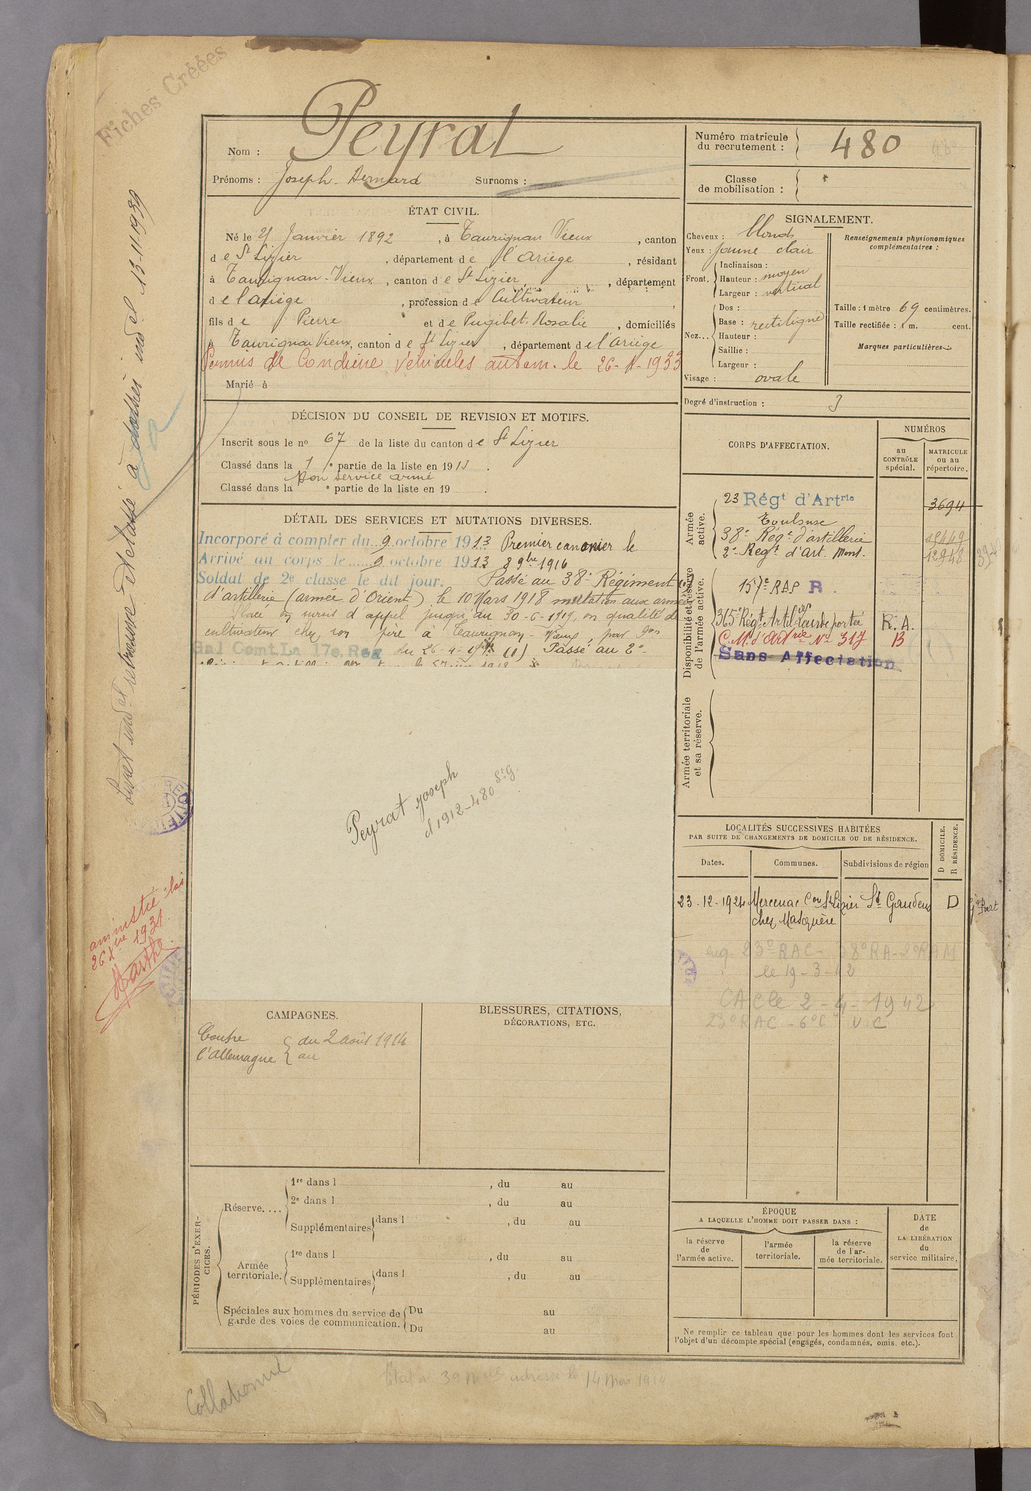 Fiches Créées
Nom : Peyrat
Prénoms : Joseph Bernard Surnoms :
Numéro matricule du recrutement : 480
Classe de mobilisation :
ÉTAT CIVIL.
Né le 21 Janvier 1892, à Taurignan Vieux, canton
de St Lizier, département de l'Ariège, résidant
à Taurignan-Vieux, canton de St Lizier, département
de l'ariège, profession de Cultivateur
fils de Pierre et de Pugibet Rosalie, domiciliés
à Taurignan Vieux, canton de St Lizier, département de l'ariège
Permis de Conduire véhicules autom. le 26-1933
Marié à
SIGNALEMENT.
Cheveux : blonds
Yeux : jaune clair
Front. Inclinaison :
Hauteur : moyen
Largeur : vertical
Nez... Dos :
Base : rectiligne
Hauteur :
Saillie :
Largeur :
Visage : ovale
Renseignements physionomiques complémentaires :
Taille : 1 mètre 69 centimètres.
Taille rectifiée : 1 m. cent.
Marques particulières :
Degré d'instruction : 3
DÉCISION DU CONSEIL DE REVISION ET MOTIFS.
Inscrit sous le no 67 de la liste du canton de St Lizier
Classé dans la 1 e partie de la liste en 1913.
Bon service armé
Classé dans la e partie de la liste en 19 .
DÉTAIL DES SERVICES ET MUTATIONS DIVERSES.
Incorporé à compter du 9 octobre 1913 Premier canonier le
Arrivé au corps le 9 octobre 1913 3 9bre 1916
Soldat de 2e classe le dit jour. Passé au 38e Régiment
d'artillerie (armée d'Orient) le 10 Mars 1918 mutation aux armées
Placé en sursis d'appel jusqu'au 30-6-1919, en qualité de
cultivateur chez son père à Taurignan-Vieux, par
Gal Comt La 17e Reg du 26-4- Passé au 2e
Peyrat Joseph
cl 1912-480 St G.
CORPS D'AFFECTATION.
NUMÉROS
au CONTRÔLE spécial.
MATRICULE ou au répertoire.
Armée active.
23 Régt d'Artrie 3694
Toulouse
38e Régt d'artillerie
2e Régt d'Art. Mont.
Disponibilité et réserve de l'armée active.
157e RAP R
365e Régt Artil portée R.A.
C.M. d'Artrie No 317 B
Sans Affectation
Armée territoriale et sa réserve.
LOCALITÉS SUCCESSIVES HABITÉES
PAR SUITE DE CHANGEMENTS DE DOMICILE OU DE RÉSIDENCE.
Dates. Communes. Subdivisions de région
D DOMICILE.
R RÉSIDENCE.
23-12-1924 Mercenac Con St Lizier St Gaudens D
chez Masquère
23e RAC - 38e RA - 2e RAM
le 19-3-42
CAC le 2-4-1942
23e RAC - 6e
amnistié
26 Xbre 1931
Livret indel
13-11-1939
CAMPAGNES.
Contre l'Allemagne du 2 août 1914
au
BLESSURES, CITATIONS,
DÉCORATIONS, ETC.
PÉRIODES D'EXERCICES.
Réserve....
1re dans l , du au
2e dans l , du au
Supplémentaires dans l , du au
Armée territoriale.
1re dans l , du au
Supplémentaires dans l , du au
Spéciales aux hommes du service de garde des voies de communication.
Du au
Du au
ÉPOQUE
A LAQUELLE L'HOMME DOIT PASSER DANS :
la réserve de l'armée active.
l'armée territoriale.
la réserve de l'armée territoriale.
DATE de LA LIBÉRATION du service militaire.
Ne remplir ce tableau que pour les hommes dont les services font
l'objet d'un décompte spécial (engagés, condamnés, omis, etc.).
Collationné